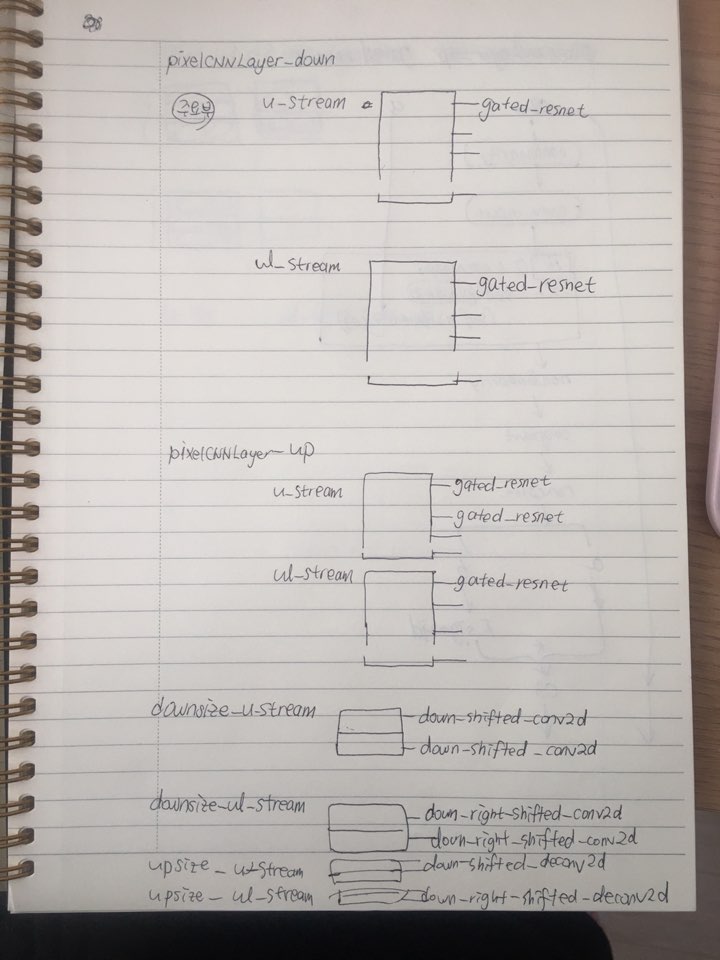 pixelCNNLayer_down
주요부
u-stream
gated_resnet
ul_stream
gated_resnet
pixelCNNLayer_up
u_stream
gated_resnet
gated_resnet
ul_stream
gated_resnet
downsize_u_stream
down_shifted_conv2d
down_shifted_conv2d
downsize_ul_stream
down_right_shifted_conv2d
down_right_shifted_conv2d
upsize_u_stream
down_shifted_deconv2d
upsize_ul_stream
down_right_shifted_deconv2d